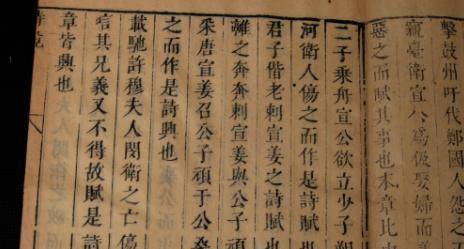 擊鼓州吁代鄭國人怨之
臺衛宣公爲伋娶婦而
惡之而賦其事也末章比
二子乘舟宣公欲立少子朔
河衛人傷之而作是詩賦
君子偕老刺宣姜之詩賦
之奔奔刺宣姜與公子頑
采唐宣姜召公子頑于公
之而作是詩興也
載馳許穆夫人閔衛之亡傷
唁其兄義又不得故賦是詩
章皆興也